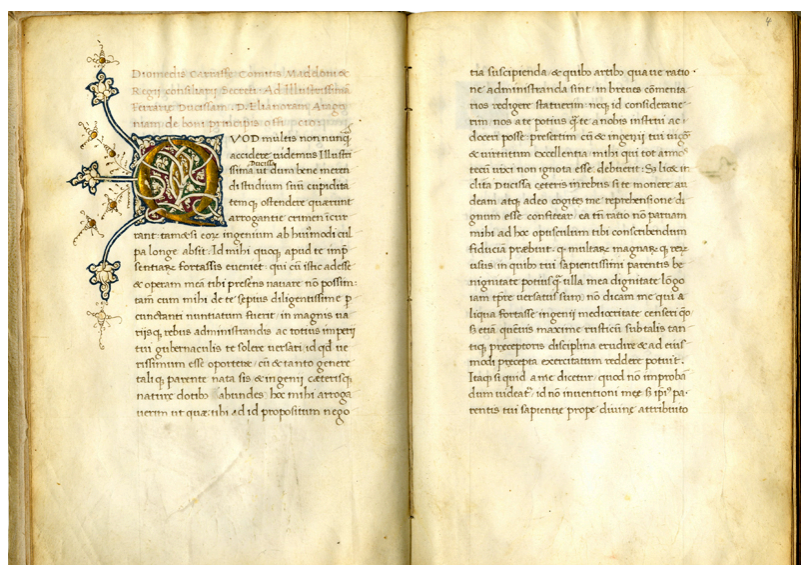 Diomedis Carrafe Comitis Maddoni &
Regii consiliarii Secreti Ad Illustrissimã
Ferrarie Ducissam . D. Elianoram Aragõ
niam de boni principis
QVOD multis non nunq̃
accidere uidemus Illustri
Ducissa
ssima ut dum bene meren
di studium suũ cupidita
temq; ostendere querunt
arrogantie crimen ĩcur
rant tamesi eorum ingenium ab huiusmodi cul
pa longe absit. Id mihi quoq; apud te imp
sentiarum fortassis eueniet. qui cũ istic adesse
& operam meã tibi presens nauare nõ possim:
tam cum mihi de te sepius diligentissime p
cunctanti nuntiatum fuerit in magnis ua
riisq; rebus administrandis ac totius imperij
tui gubernaculis te solere uersari id qd ue
rissimum esse oportet. cũ & tanto genere
taliq; parente nata sis & ingenij cæterisq;
nature dotibus abundes hoc mihi arroga
uerim ut quæ tibi ad id propositum nego
4
tia suscipienda & quibus artibus qua ue ratio
ne administranda sint in breues cõmenta
rios redigere statuerim neq; id considerаue
rim nos a te potius q̃ te a nobis instrui ac
doceri posse presertim cũ & ingenij tui uigor
& uirtutum excellentia mihi qui tot annos
tecũ uixi non ignota esse debuerit: Sed licet in
clita Ducissa ceteris in rebus si te monere au
deam atq; adeo cogitem me reprehensione di
gnum esse confitear. ea tñ ratio nõ paruam
mihi ad hoc opusculum tibi conscribendum
fiduciã præbuit. q multarum magnarumq; rerum
usus in quibus tui sapientissimi parentis be
nignitate potiusq̃ ulla mea dignitate lõgo
iam tpre uersatus sum. nõ dicam me qui a
liqua fortasse ingenij mediocritate censeri qo
sed etiã quẽuis maxime rusticũ sub talis tan
tiq; preceptoris disciplina erudire & ad eius
modi precepta exercitatum reddere potuit.
Itaq; si quid a me dicetur quod nõ improbã
dum uideat. id nõ inuentioni meę sed ipius pa
rentis tui sapientie prope diuine attribuito